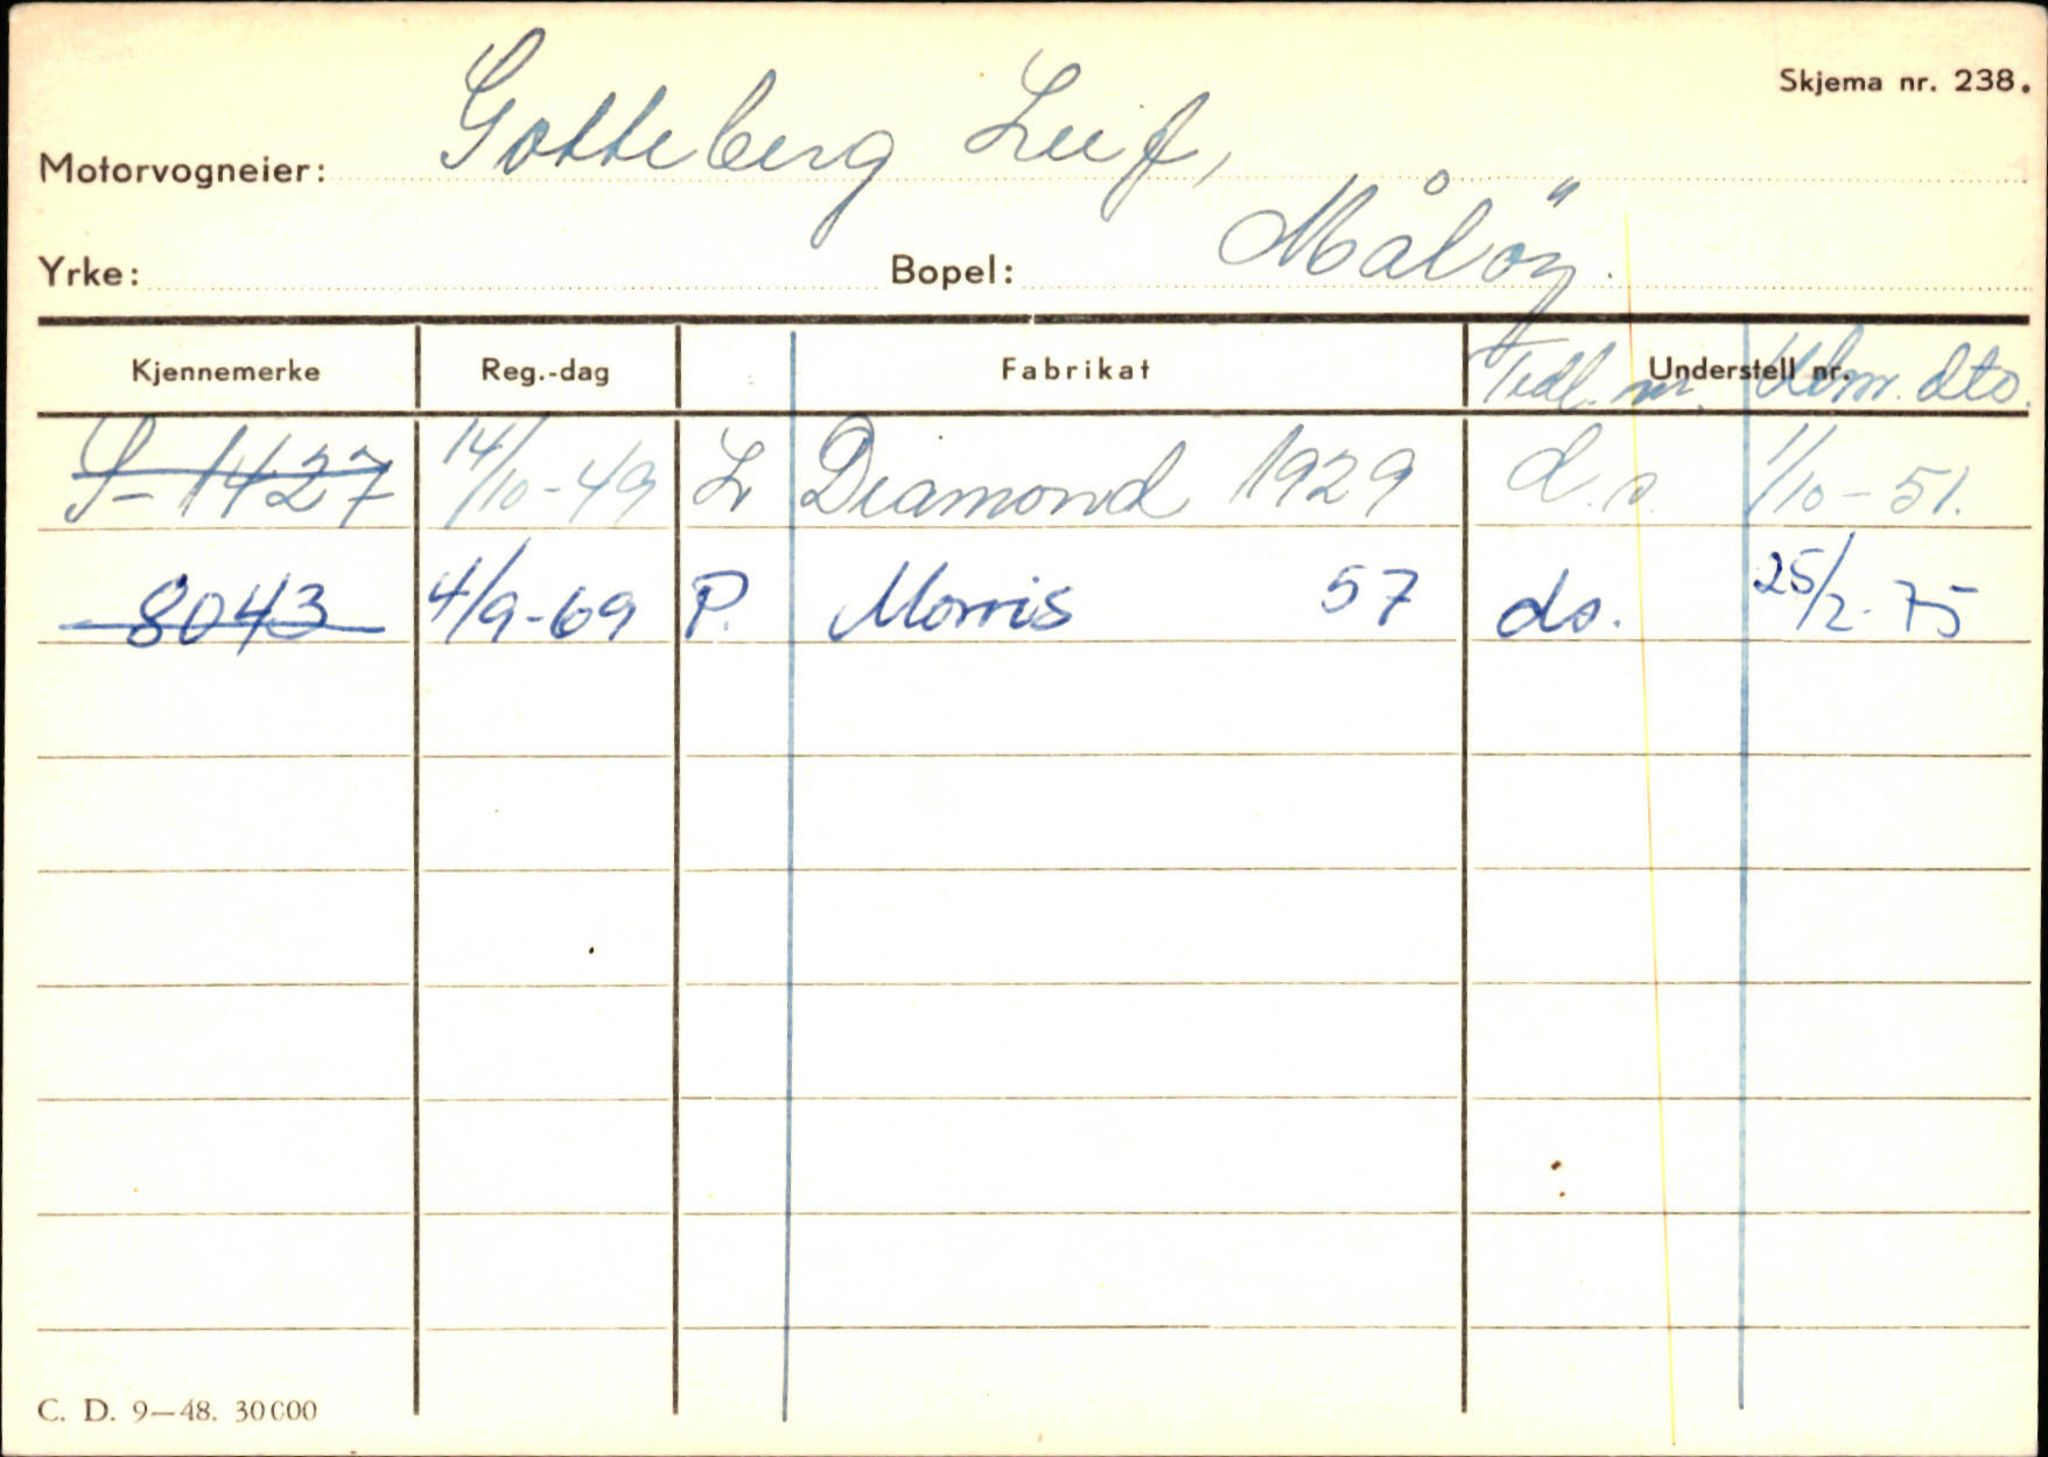 Skjema nr. 238.
Motorvogneier: Gotteberg Leif,
Yrke: Bopel: Måløy.
Kjennemerke Reg.-dag Fabrikat Understell nr.
Tidl. nr. Udm. dto.
S-1427 14/10-49 L Diamond 1929 d.s. 1/10-51.
8043 4/9-69 P. Morris 57 ds. 25/2-75
C. D. 9—48. 30000